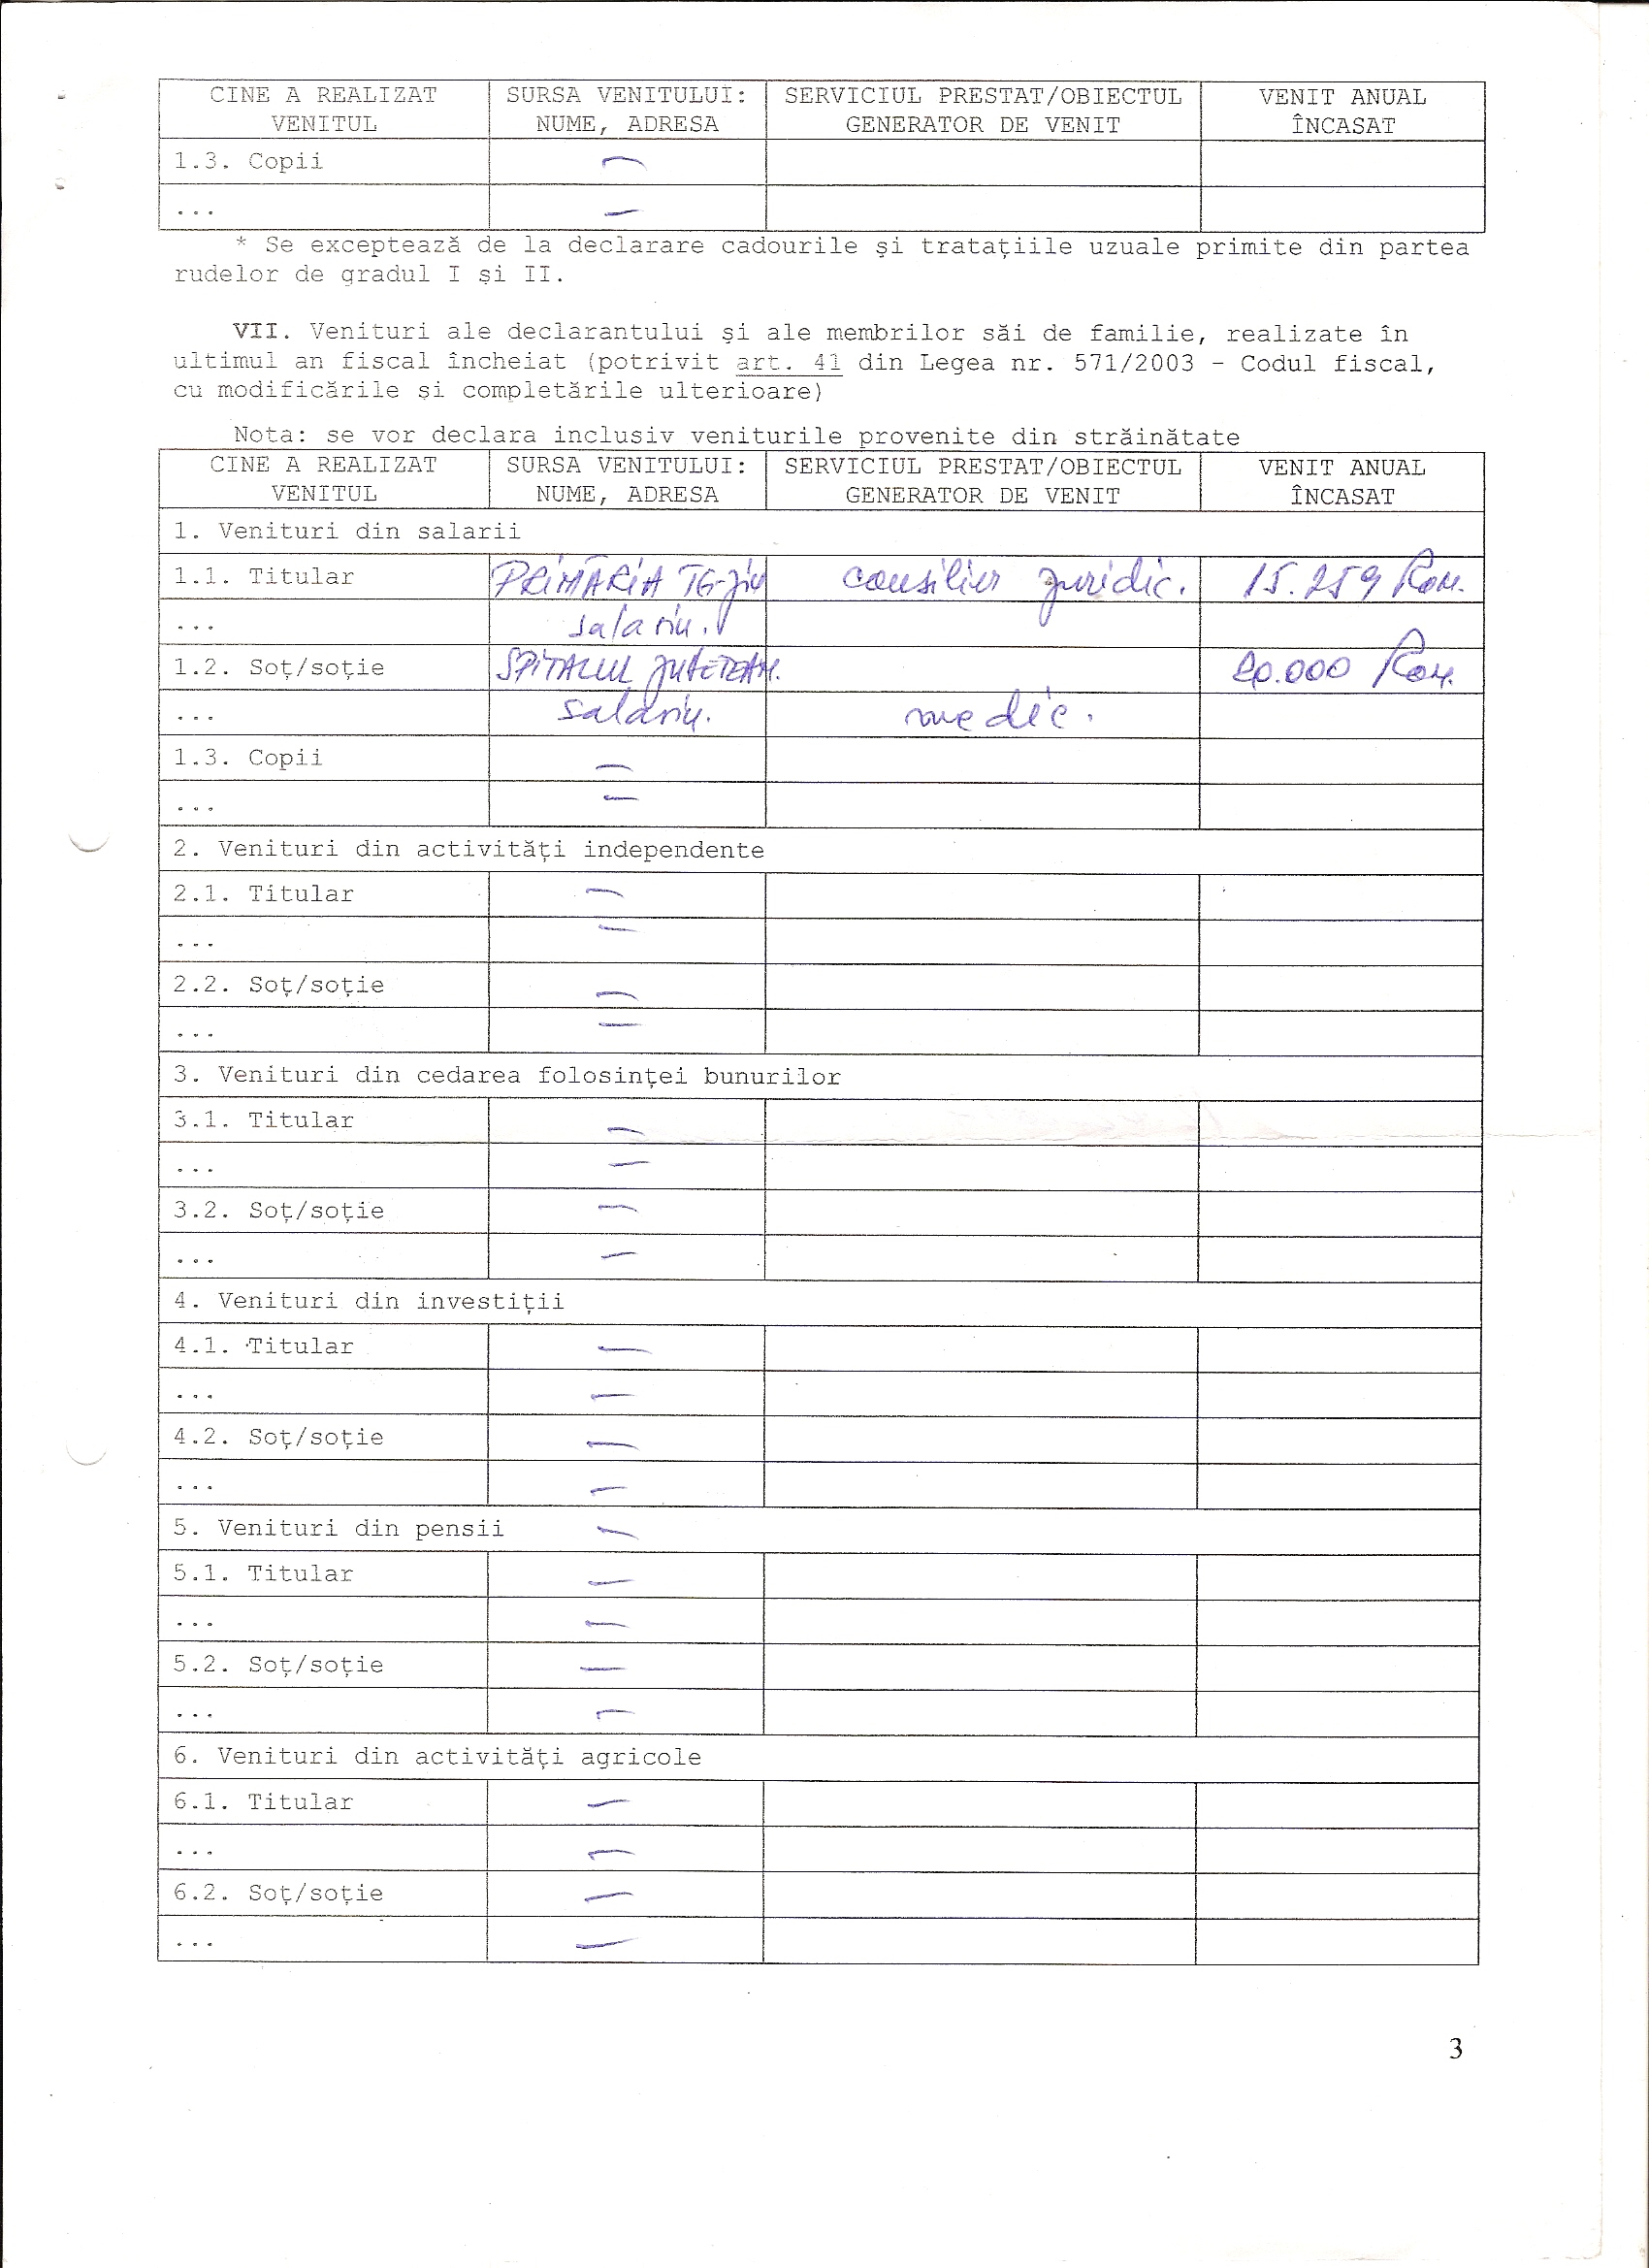 CINE A REALIZAT VENITUL | SURSA VENITULUI: NUME, ADRESA | SERVICIUL PRESTAT/OBIECTUL GENERATOR DE VENIT | VENIT ANUAL ÎNCASAT
1.3. Copii —
... —
* Se exceptează de la declarare cadourile și tratațiile uzuale primite din partea
rudelor de gradul I și II.
VII. Venituri ale declarantului și ale membrilor săi de familie, realizate în
ultimul an fiscal încheiat (potrivit art. 41 din Legea nr. 571/2003 - Codul fiscal,
cu modificările și completările ulterioare)
Nota: se vor declara inclusiv veniturile provenite din străinătate
CINE A REALIZAT VENITUL | SURSA VENITULUI: NUME, ADRESA | SERVICIUL PRESTAT/OBIECTUL GENERATOR DE VENIT | VENIT ANUAL ÎNCASAT
1. Venituri din salarii
1.1. Titular PRIMĂRIA TG-Jiu consilier juridic. 15.259 Ron.
... salariu.
1.2. Soț/soție SPITALUL JUDEȚEAN. 20.000 Ron.
... salariu. medic.
1.3. Copii —
... —
2. Venituri din activități independente
2.1. Titular —
... —
2.2. Soț/soție —
... —
3. Venituri din cedarea folosinței bunurilor
3.1. Titular —
... —
3.2. Soț/soție —
... —
4. Venituri din investiții
4.1. Titular —
... —
4.2. Soț/soție —
... —
5. Venituri din pensii —
5.1. Titular —
... —
5.2. Soț/soție —
... —
6. Venituri din activități agricole
6.1. Titular —
... —
6.2. Soț/soție —
... —
3